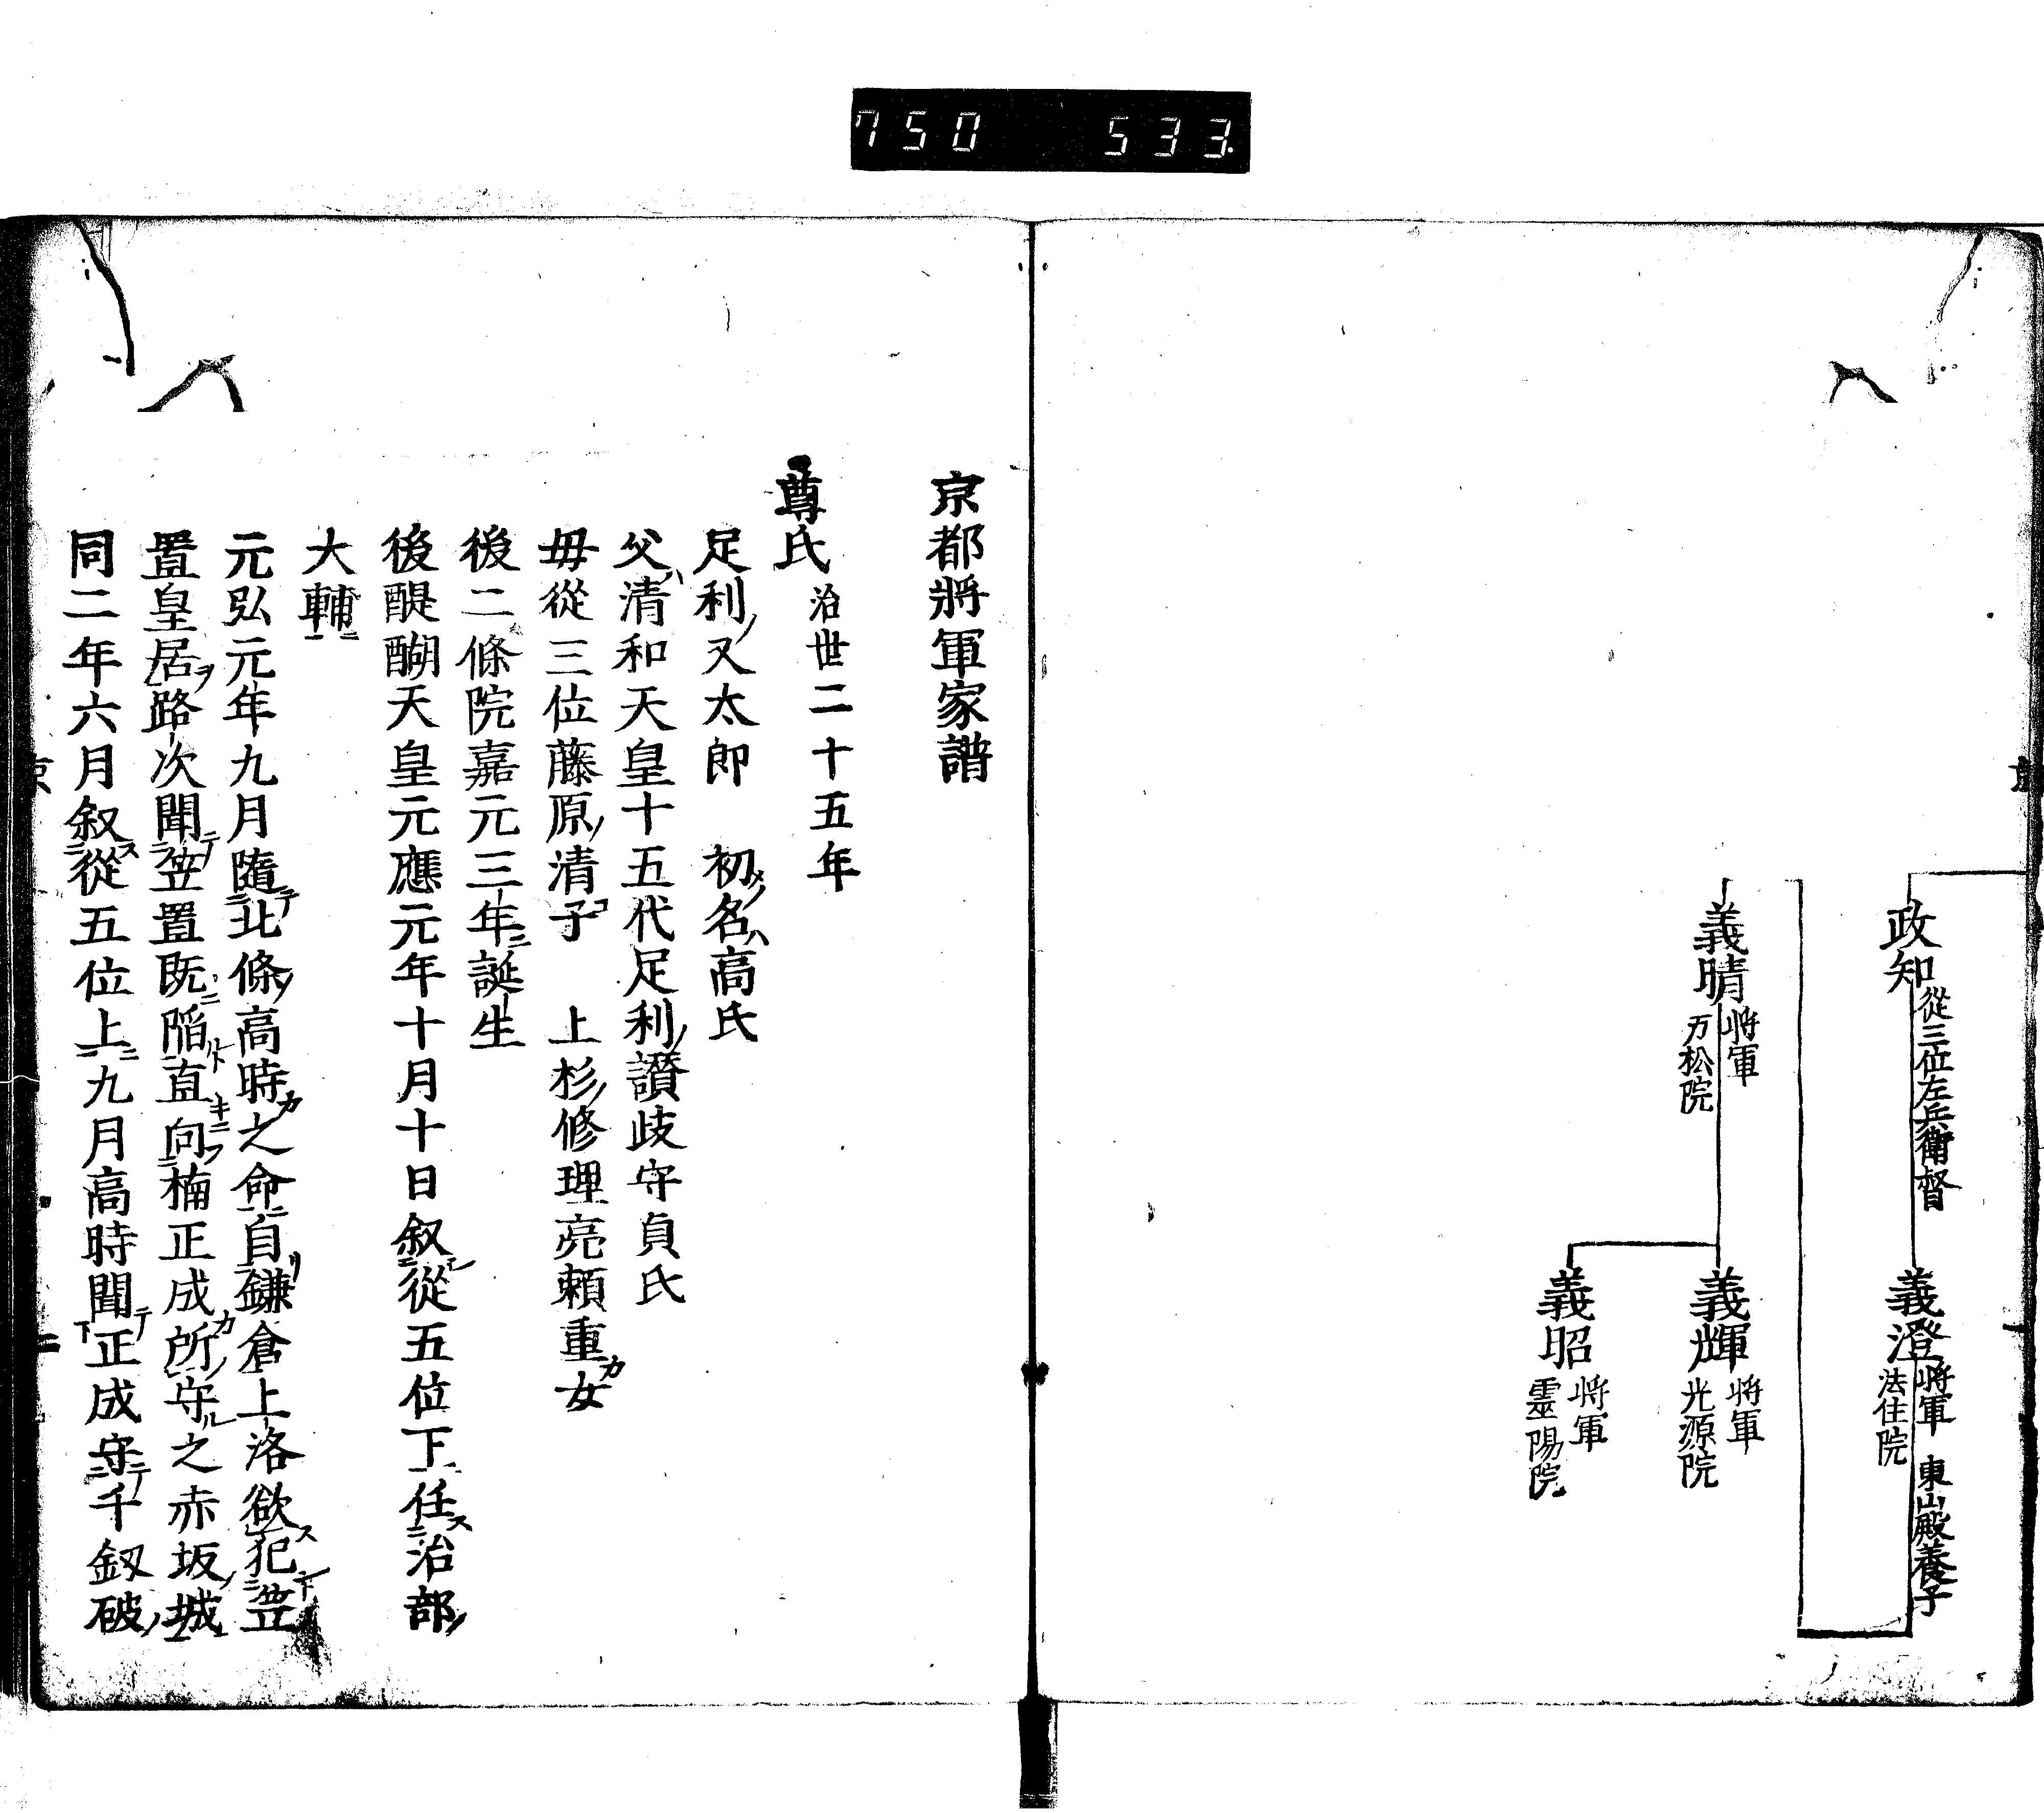 750 533
政知 從三位左兵衛督
義澄 將軍 東山殿養子
法住院
義晴 將軍
万松院
義輝 將軍
光源院
義昭 將軍
靈陽院
京都將軍家譜
尊氏 治世二十五年
足利ノ又太郎 初メノ名ハ高氏
父ハ清和天皇十五代足利ノ讃岐守貞氏
母從三位藤原ノ清子 上杉ノ修理亮頼重カ女
後二條院嘉元三年ニ誕生
後醍醐天皇元應元年十月十日叙シ從五位下任ス治部ノ
大輔
元弘元年九月隨テ北條ノ高時カ之命自リ鎌倉上洛欲ス犯ント笠
置皇居ヲ路次聞テ笠置既ニ陷ルト直向フ楠正成カ所ノ守ル之赤坂ノ城
同二年六月叙ス從五位上九月高時聞テ下正成守テ千釼破ノ